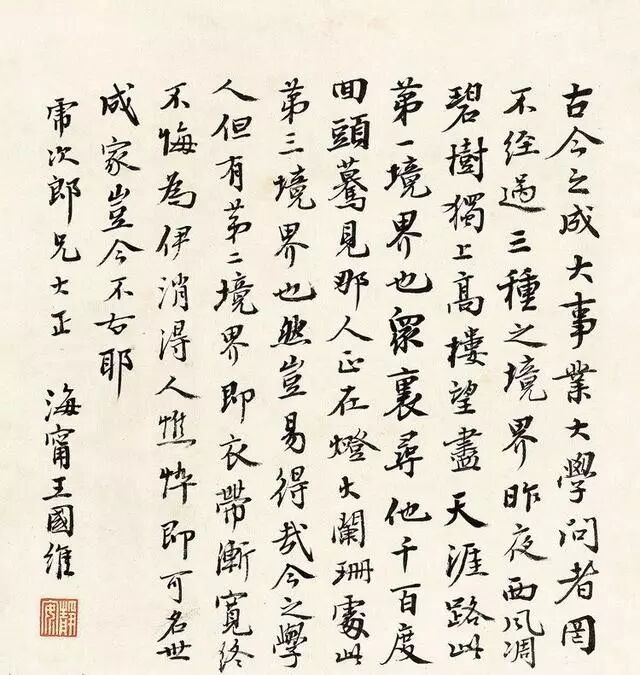 古今之成大事業大學问者罔
不经過三種之境界昨夜西风凋
碧樹獨上高樓望盡天涯路此
第一境界也眾裏尋他千百度
回頭驀見那人正在燈火闌珊處此
第三境界也然豈易得哉今之學
人但有第二境界即衣帶漸寬終
不悔為伊消得人憔悴即可名世
成家豈今不古耶
虎次郎兄大正
海甯王國維
靜安